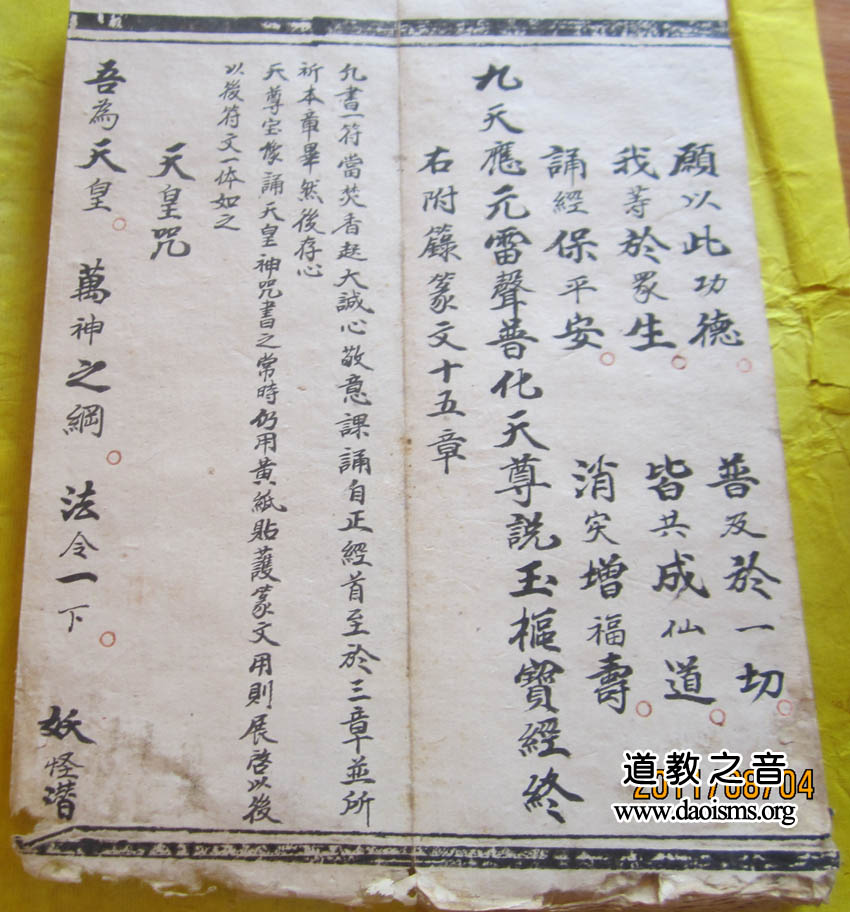 願以此功德。 普及於一切。
我等於眾生。 皆共成仙道。
誦經保平安。 消災增福壽。
九天應元雷聲普化天尊説玉樞寶經終
右附籙篆文十五章
凢書一符當焚香起大誠心敬意課誦自正經首至於三章並所
祈本章畢然後存心
天尊宝像誦天皇神咒書之常時仍用黄紙貼護篆文用則展啓以後
以後符文一体如之
天皇咒
吾為天皇。 萬神之綱。 法令一下。 妖怪潜
2011/08/04
道教之音
www.daoisms.org